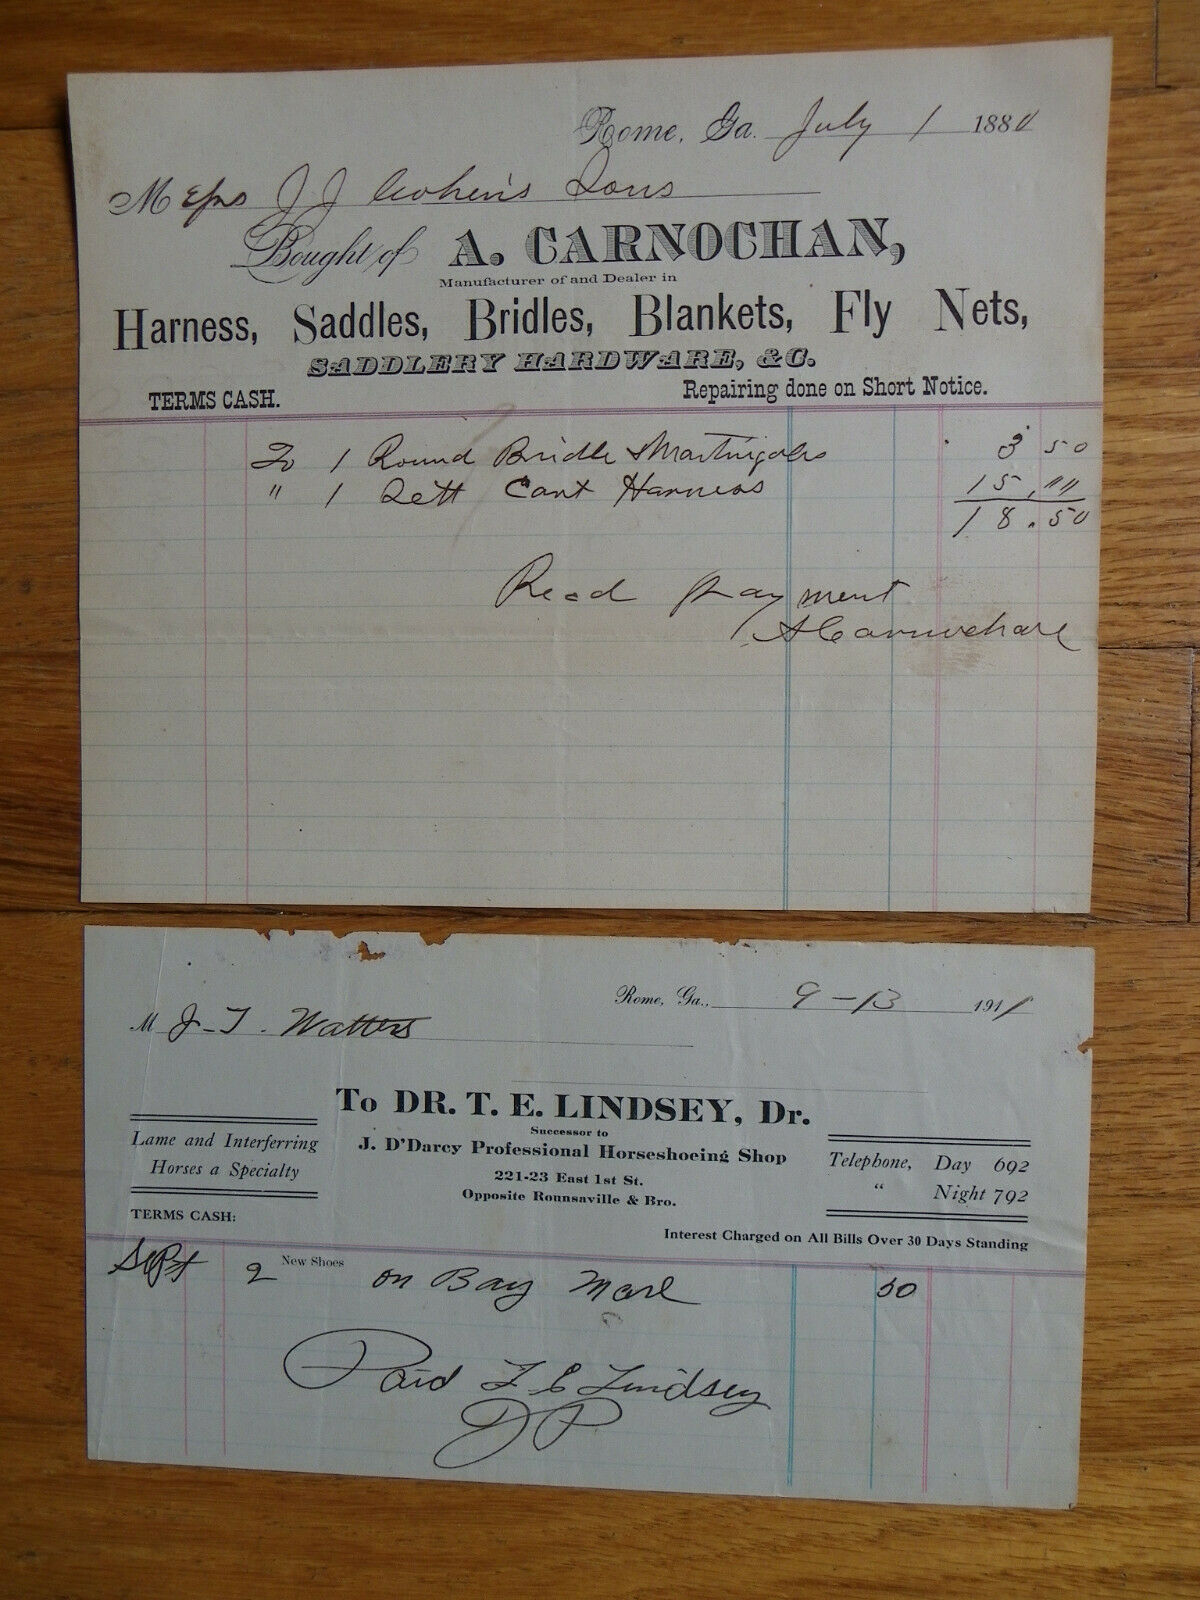 Rome, Ga. July 1 1880
Mess J J Cohen's Sons
Bought of A. CARNOCHAN,
Manufacturer of and Dealer in
Harness, Saddles, Bridles, Blankets, Fly Nets,
SADDLERY HARDWARE, &C.
TERMS CASH. Repairing done on Short Notice.
To 1 Round Bridle & Martingales 3 50
" 1 Sett Cart Harness 15 . "
18 . 50
Recd payment
A Carnochan
Rome, Ga., 9-13 1911
M J. T. Watters
To DR. T. E. LINDSEY, Dr.
Successor to
J. D'Darcy Professional Horseshoeing Shop
221-23 East 1st St.
Opposite Rounsaville & Bro.
Lame and Interferring
Horses a Specialty
Telephone, Day 692
" Night 792
TERMS CASH:
Interest Charged on All Bills Over 30 Days Standing
Sept 2 New Shoes on Bay Mare 50
Paid T E Lindsey